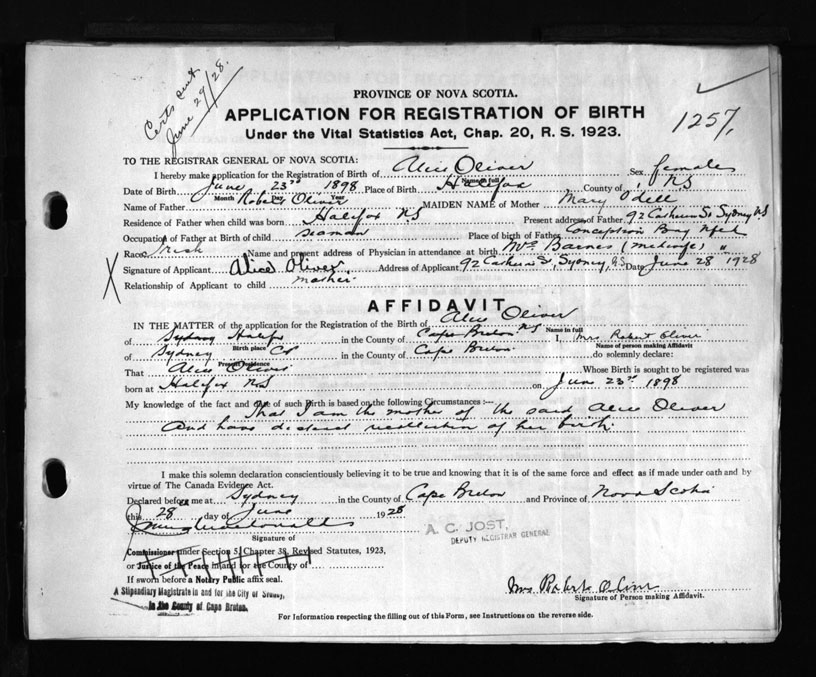 Certs sent
June 29/28.
1257.
PROVINCE OF NOVA SCOTIA.
APPLICATION FOR REGISTRATION OF BIRTH
Under the Vital Statistics Act, Chap. 20, R. S. 1923.
TO THE REGISTRAR GENERAL OF NOVA SCOTIA:
I hereby make application for the Registration of Birth of Alice Oliver Sex female
Name in full
Date of Birth June 23rd 1898 Place of Birth Halifax County of " N.S
Month Day Year
Name of Father Robert Oliver MAIDEN NAME of Mother Mary Odell
Residence of Father when child was born Halifax N.S Present address of Father 92 St Sydney N.S
Occupation of Father at Birth of child seaman Place of birth of Father Conception Bay Nfld
Race Irish Name and present address of Physician in attendance at birth Mrs Barnes (midwife) "
X Signature of Applicant Alice Oliver Address of Applicant 92 St, Sydney, N.S Date June 28 1928
Relationship of Applicant to child mother
AFFIDAVIT
IN THE MATTER of the application for the Registration of the Birth of Alice Oliver
Name in full
of Sydney Halifx in the County of Cape Breton N.S I, Mrs. Robert Oliver
Birth place Name of person making Affidavit
of Sydney CB in the County of Cape Breton do solemnly declare:
Present residence
That Alice Oliver Whose Birth is sought to be registered was
born at Halifax N.S on June 23rd 1898
My knowledge of the fact and date of such Birth is based on the following Circumstances :—
That I am the mother of the said Alice Oliver
And have distinct recollection of her birth.
I make this solemn declaration conscientiously believing it to be true and knowing that it is of the same force and effect as if made under oath and by
virtue of The Canada Evidence Act.
Declared before me at Sydney in the County of Cape Breton and Province of Nova Scotia
this 28 day of June 1928
A. C. JOST,
DEPUTY REGISTRAR GENERAL
Signature of
Commissioner under Section 5, Chapter 38, Revised Statutes, 1923,
or Justice of the Peace in and for the County of
If sworn before a Notary Public affix seal.
A Stipendiary Magistrate in and for the City of Sydney,
in the County of Cape Breton.
Mrs Robert Oliver
Signature of Person making Affidavit.
For Information respecting the filling out of this Form, see Instructions on the reverse side.